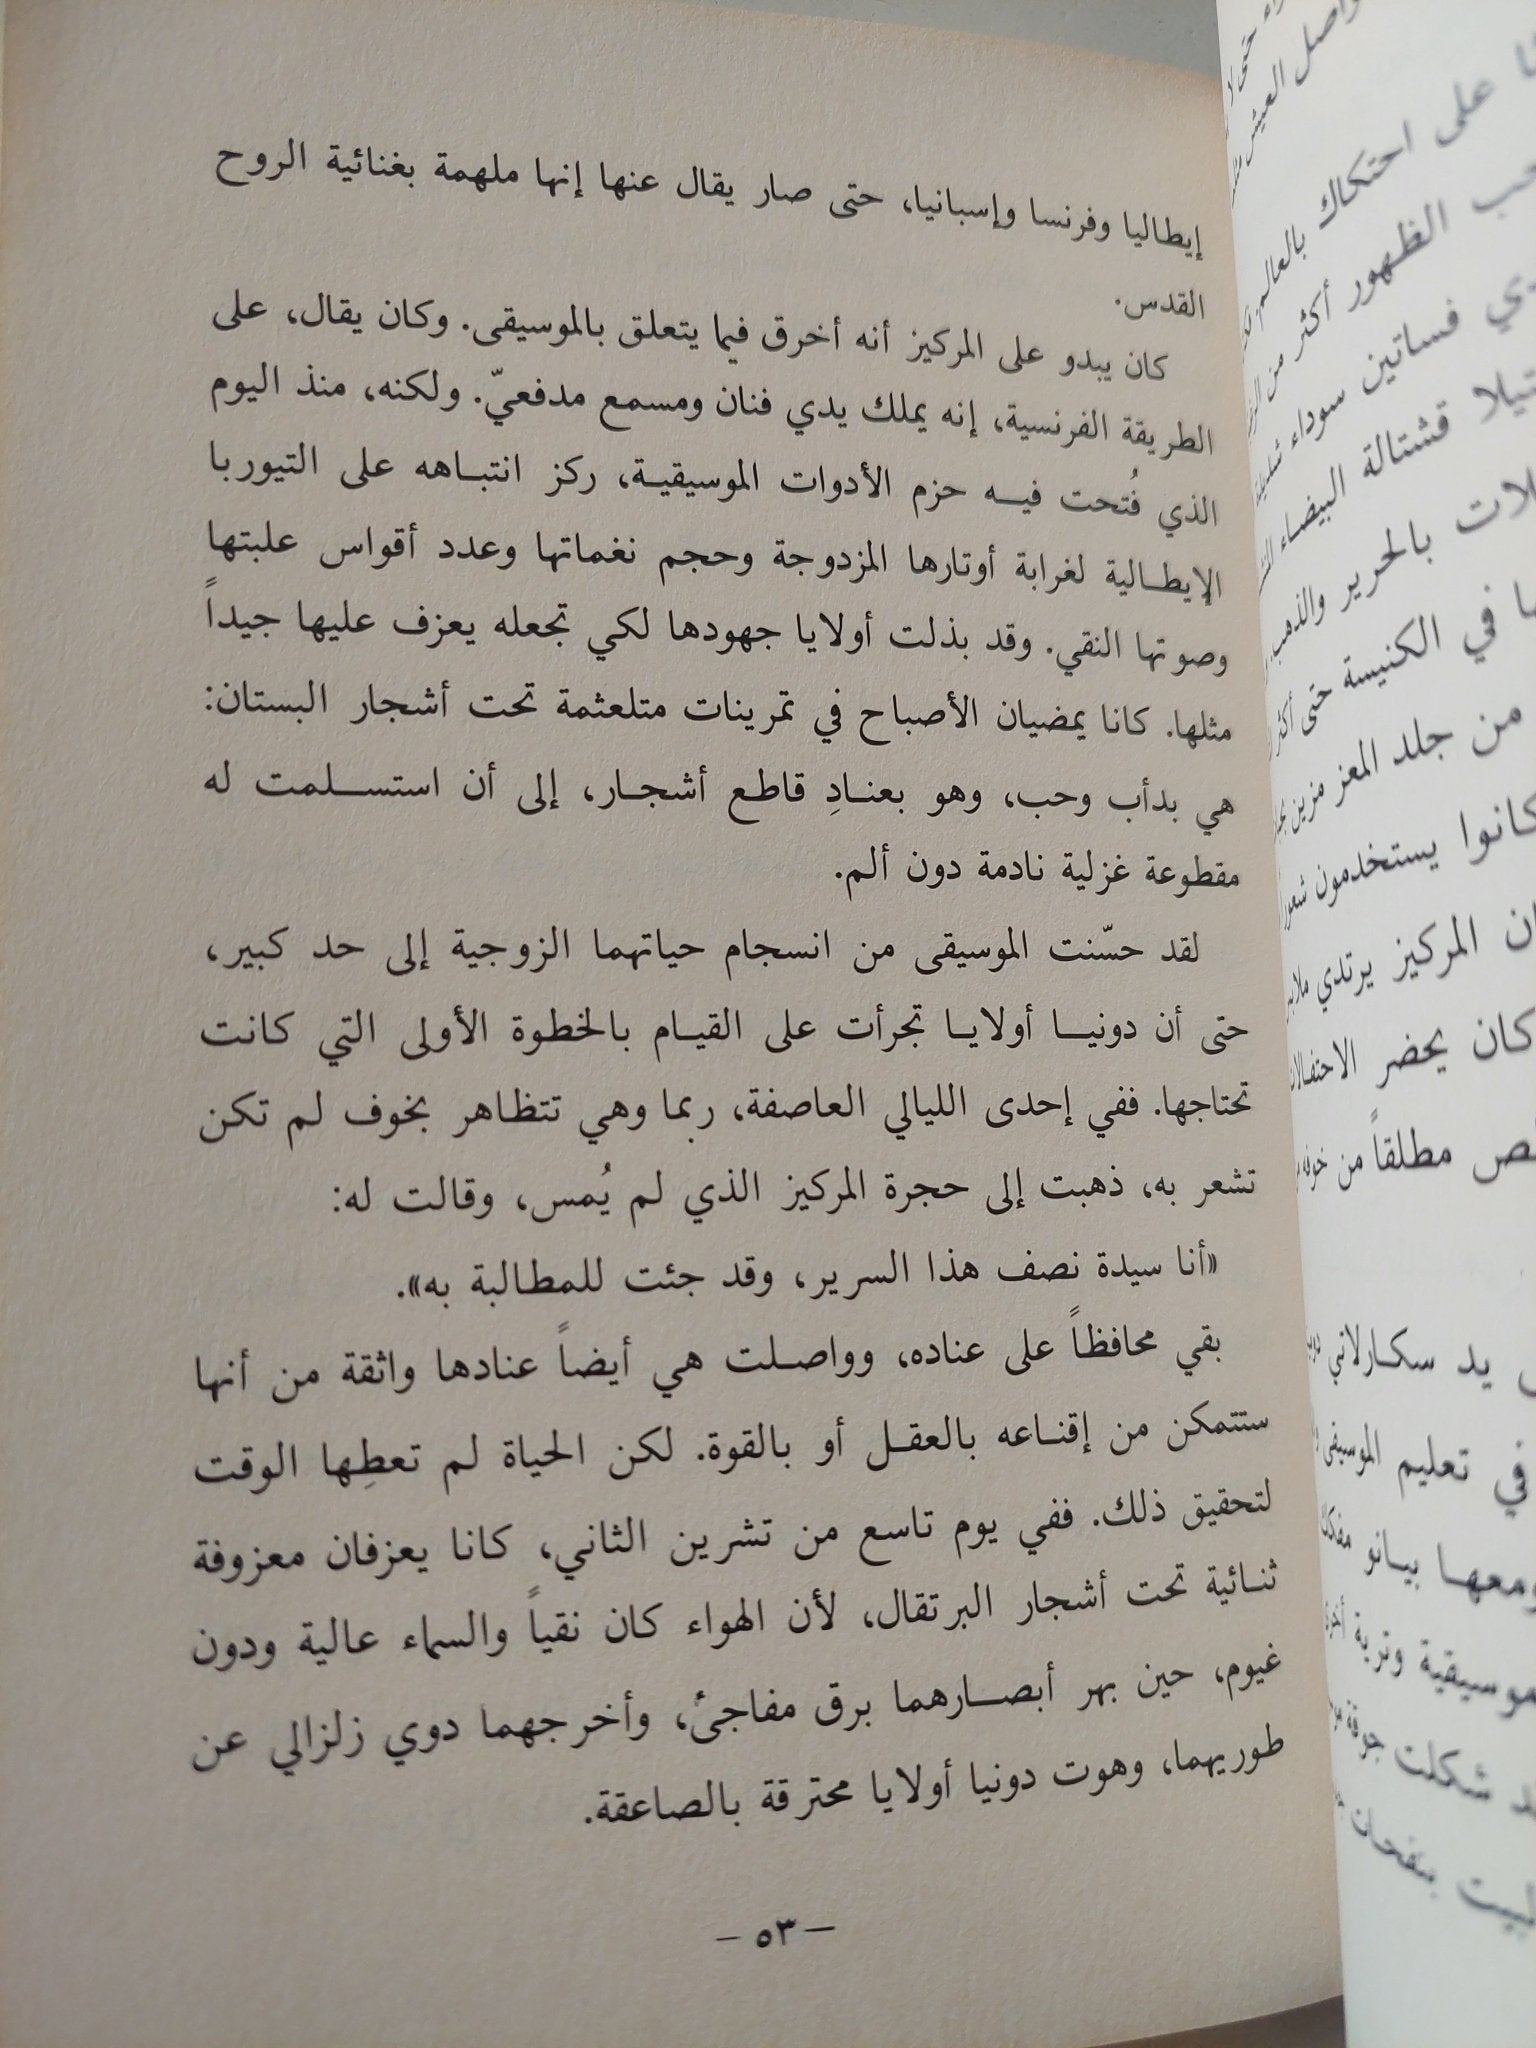 إيطاليا وفرنسا وإسبانيا، حتى صار يقال عنها إنها ملهمة بغنائية الروح
القدس.
كان يبدو على المركيز أنه أخرق فيما يتعلق بالموسيقى. وكان يقال، على
الطريقة الفرنسية، إنه يملك يدي فنان ومسمع مدفعيّ. ولكنه، منذ اليوم
الذي فُتحت فيه حزم الأدوات الموسيقية، ركز انتباهه على التيوربا
الإيطالية لغرابة أوتارها المزدوجة وحجم نغماتها وعدد أقواس علبتها
وصوتها النقي. وقد بذلت أولايا جهودها لكي تجعله يعزف عليها جيداً
مثلها. كانا يمضيان الأصباح في تمرينات متلعثمة تحت أشجار البستان:
هي بدأب وحب، وهو بعنادِ قاطع أشجار، إلى أن استسلمت له
مقطوعة غزلية نادمة دون ألم.
لقد حسّنت الموسيقى من انسجام حياتهما الزوجية إلى حد كبير،
حتى أن دونيا أولايا تجرأت على القيام بالخطوة الأولى التي كانت
تحتاجها. ففي إحدى الليالي العاصفة، ربما وهي تتظاهر بخوف لم تكن
تشعر به، ذهبت إلى حجرة المركيز الذي لم يُمس، وقالت له:
«أنا سيدة نصف هذا السرير، وقد جئت للمطالبة به».
بقي محافظاً على عناده، وواصلت هي أيضاً عنادها واثقة من أنها
ستتمكن من إقناعه بالعقل أو بالقوة. لكن الحياة لم تعطِها الوقت
لتحقيق ذلك. ففي يوم تاسع من تشرين الثاني، كانا يعزفان معزوفة
ثنائية تحت أشجار البرتقال، لأن الهواء كان نقياً والسماء عالية ودون
غيوم، حين بهر أبصارهما برق مفاجئ، وأخرجهما دوي زلزالي عن
طوريهما، وهوت دونيا أولايا محترقة بالصاعقة.
– ٥٣ –
واصل العيش
على احتكاك بالعالم
الظهور أكثر من
فساتين سوداء
قشتالة البيضاء
بالحرير والذهب
في الكنيسة حتى أكثر
من جلد المعز مزين
كانوا يستخدمون
المركيز يرتدي
كان يحضر الاحتفالات
مطلقاً من خوفه
يد سكارلاتي
في تعليم الموسيقى
ومعها بيانو
وتربة
شكلت جوقة